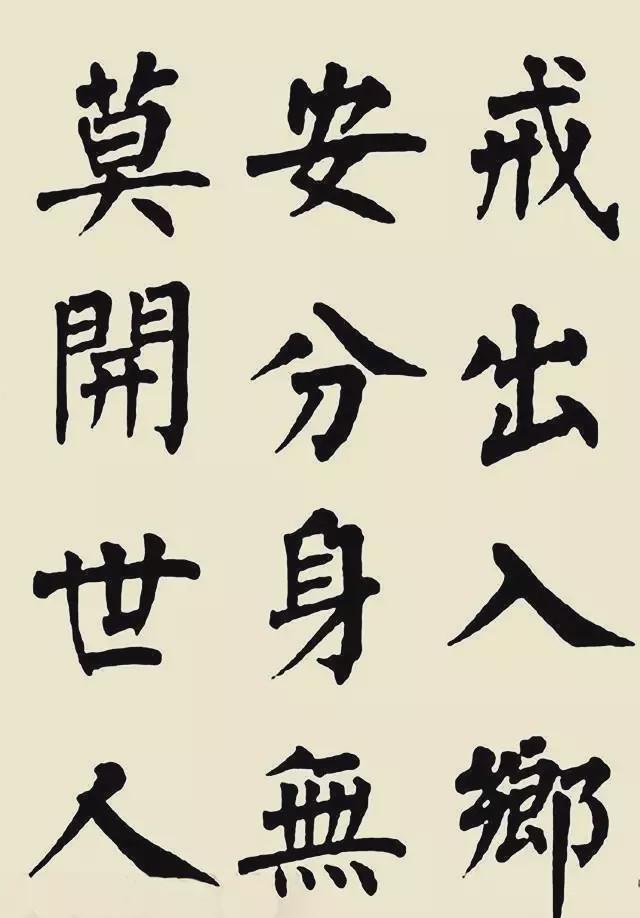 戒出入鄉
安分身無
莫開世人